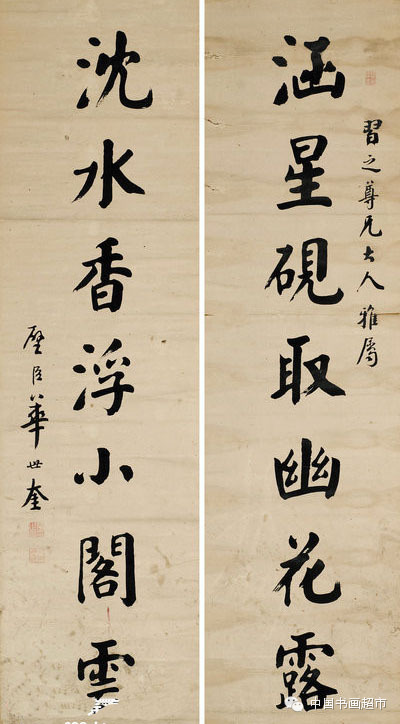 習之尊兄大人雅屬
涵星硯取幽花露
沈水香浮小閣雲
壁臣華世奎
中国书画超市